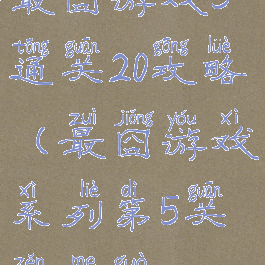 最囧游戏5
tōng guān gōng lüè
通关20攻略
zuì jiǒng yóu xì
(最囧游戏
xì liè dì guān
系列第5关
zěn me guò